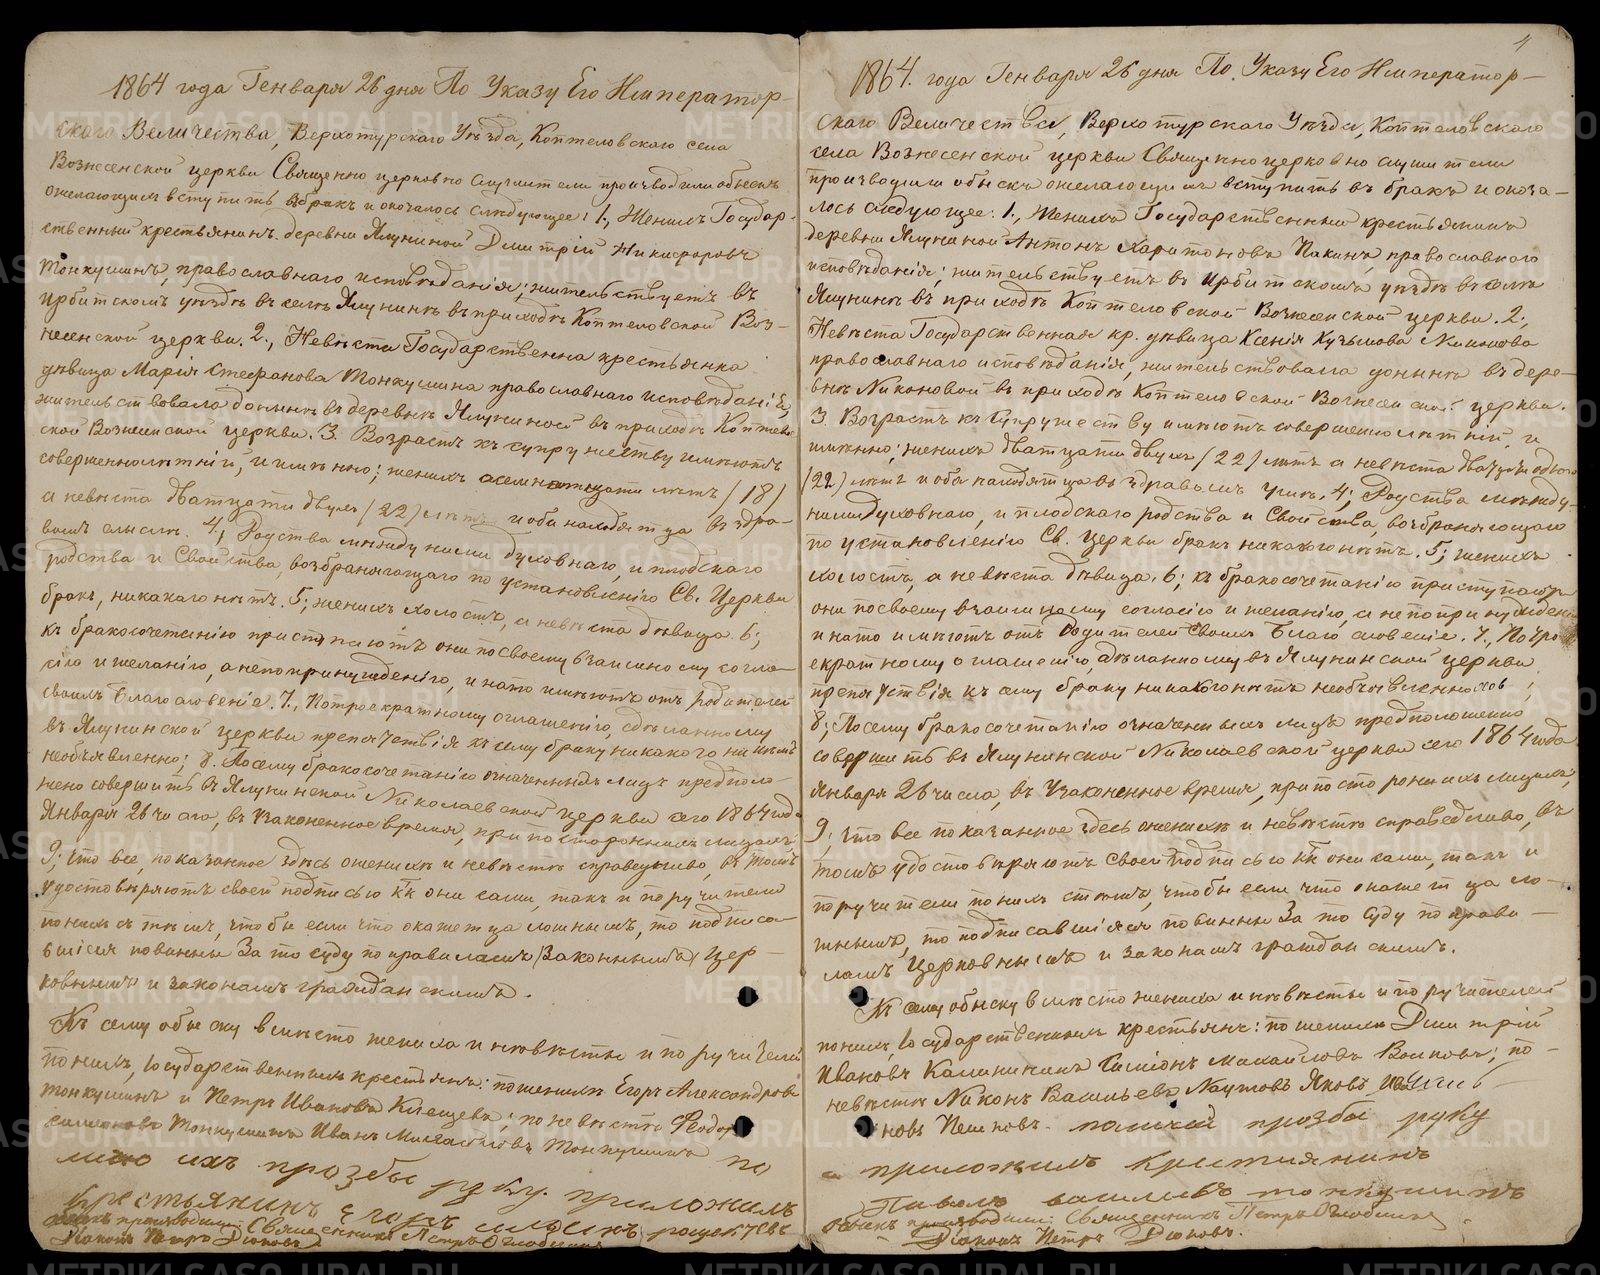 1864 года Генваря 26 дня По Указу Его Император-
скаго Величества, Верхотурскаго Уѣзда, Коптеловскаго села
Вознесенской церкви Священно церковно служители производили обыскъ
о желающихъ вступить въ бракъ и оказалось слѣдующее: 1., Женихъ Государ-
ственный крестьянинъ деревни Ялуниной Дмитрій Никифоровъ
Тонкушинъ, православнаго исповѣданія; жительствуетъ въ
Ирбитскомъ уѣздѣ въ селѣ Ялунинѣ въ приходѣ Коптеловской Воз-
несенской церкви. 2., Невѣста Государственна крестьянка
дѣвица Марія Стефанова Тонкушина православнаго исповѣданія,
жительствовала донынѣ въ деревнѣ Ялуниной въ приходѣ Коптелов
ской Вознесенской церкви. 3. Возрастъ къ супружеству имѣютъ
совершеннолѣтній, и именно; женихъ осемнатцати лѣтъ /18/
а невѣста дватцати двухъ /22/ лѣтъ и оба находятца въ здра-
вомъ смыслѣ. 4; Родства между ними духовнаго, и плодскаго
родства и Свойства, возбраняющаго по установленію Св. Церкви
бракъ, никакаго нѣтъ. 5; женихъ холостъ, а невѣста дѣвица. 6;
къ бракосочетанію приступаютъ они посвоему взаимному согла-
сію и желанію, а непопринужденію, и нато имѣютъ отъ родителей
своихъ Благословеніе. 7., Потроекратному оглашенію, сдѣланному
въ Ялунинской церкви препятствія къ сему браку никакого нѣтъ
необъявленно; 8. Посему бракосочетанію означенныхъ лицъ предполо-
жено совершить въ Ялунинской Николаевской церкви сего 1864 года
Января 26 числа, въ Узаконенное время, при постороннихъ лицахъ;
9; Что все, показанное здѣсь о женихѣ и невѣстѣ справедливо, въ томъ
удостовѣряютъ своей подписью кк они сами, такъ и поручители
по нихъ съ тѣмъ, чтобы если что окажетца ложнымъ, то подписа-
вшіися повинны За то суду по правиламъ (Законнымъ) цер-
ковнымъ и законамъ гражданскимъ.
Къ сему обыску вмѣсто жениха и невѣсты и поручителей
по нихъ, Государственныхъ крестьянъ: по женихѣ Егоръ Александровъ
Тонкушинъ и Петръ Ивановъ Клещевъ; по невѣстѣ Ѳеодоръ
Симоновъ Тонкушинъ Иванъ Михайловъ Тонкушинъ по
ихъ прозбы руку приложилъ
крестьянинъ
обыскъ производили: Священникъ Петръ
Діаконъ Петръ Дьяковъ
4
1864. года Генваря 26 дня По Указу Его Император-
скаго Величества, Верхотурскаго Уѣзда, Коптеловскаго
села Вознесенской церкви Священно церковно служители
производили обыскъ о желающихъ вступить въ бракъ и оказа-
лось слѣдующее: 1., Женихъ Государственный крестьянинъ
деревни Ялуниной Антонъ Харитоновъ Пакинъ, православнаго
исповѣданія; жительствуетъ въ Ирбитскомъ уѣздѣ въ селѣ
Ялунинѣ въ приходѣ Коптеловской Вознесенской церкви. 2;
Невѣста Государственная кр. дѣвица Ксенія Кузьмова
православнаго исповѣданія, жительствовала донынѣ въ дере-
внѣ Никоновой въ приходѣ Коптеловской Вознесенской церкви.
3. Возрастъ къ супружеству имѣютъ совершеннолѣтній, и
именно; женихъ дватцати двухъ /22/ лѣтъ а невѣста
/22/ лѣтъ и оба находятца въ здравомъ умѣ. 4; Родства между
ними Духовнаго, и плодскаго родства и Свойства, возбраняющаго
по установленію Св. Церкви бракъ никакого нѣтъ. 5; женихъ
холостъ, а невѣста дѣвица. 6; къ бракосочетанію приступаютъ
они посвоему взаимному согласію и желанію, а непопринужденію
и нато имѣютъ отъ Родителей Своихъ Благословеніе. 7., Потро-
екратному оглашенію, сдѣланному въ Ялунинской церкви
препятствія къ сему браку никакого нѣтъ необъявленно;
8; Посему бракосочетанію означенныхъ лицъ предположенно
совершить въ Ялунинской Николаевской церкви сего 1864 года
Января 26 числа, въ Узаконенное время, при постороннихъ лицахъ;
9; Что все показанное здѣсь о женихѣ и невѣстѣ справедливо, въ
томъ удостовѣряютъ своей подписью кк они сами, такъ и
поручители по нихъ стѣмъ, чтобы если что окажетца ло-
жнымъ, то подписавшіися повинны За то Суду по прави-
ламъ Церковнымъ и законамъ гражданскимъ.
Къ сему обыску вмѣсто жениха и невѣсты и поручителей
по нихъ, Государственныхъ крестьянъ: по женихѣ Дмитрій
Ивановъ Калининъ Симіонъ Михайловъ Воиновъ; по-
невѣстѣ Никонъ Васильевъ Наумовъ Яковъ
новъ Пешковъ. прозбы руку
приложилъ крестиянинъ
Павелъ василивъ тонкушинъ
обыскъ производили: Священникъ Петръ
Діаконъ Петръ Дьяковъ.
METRIKI.GASO-URAL.RU